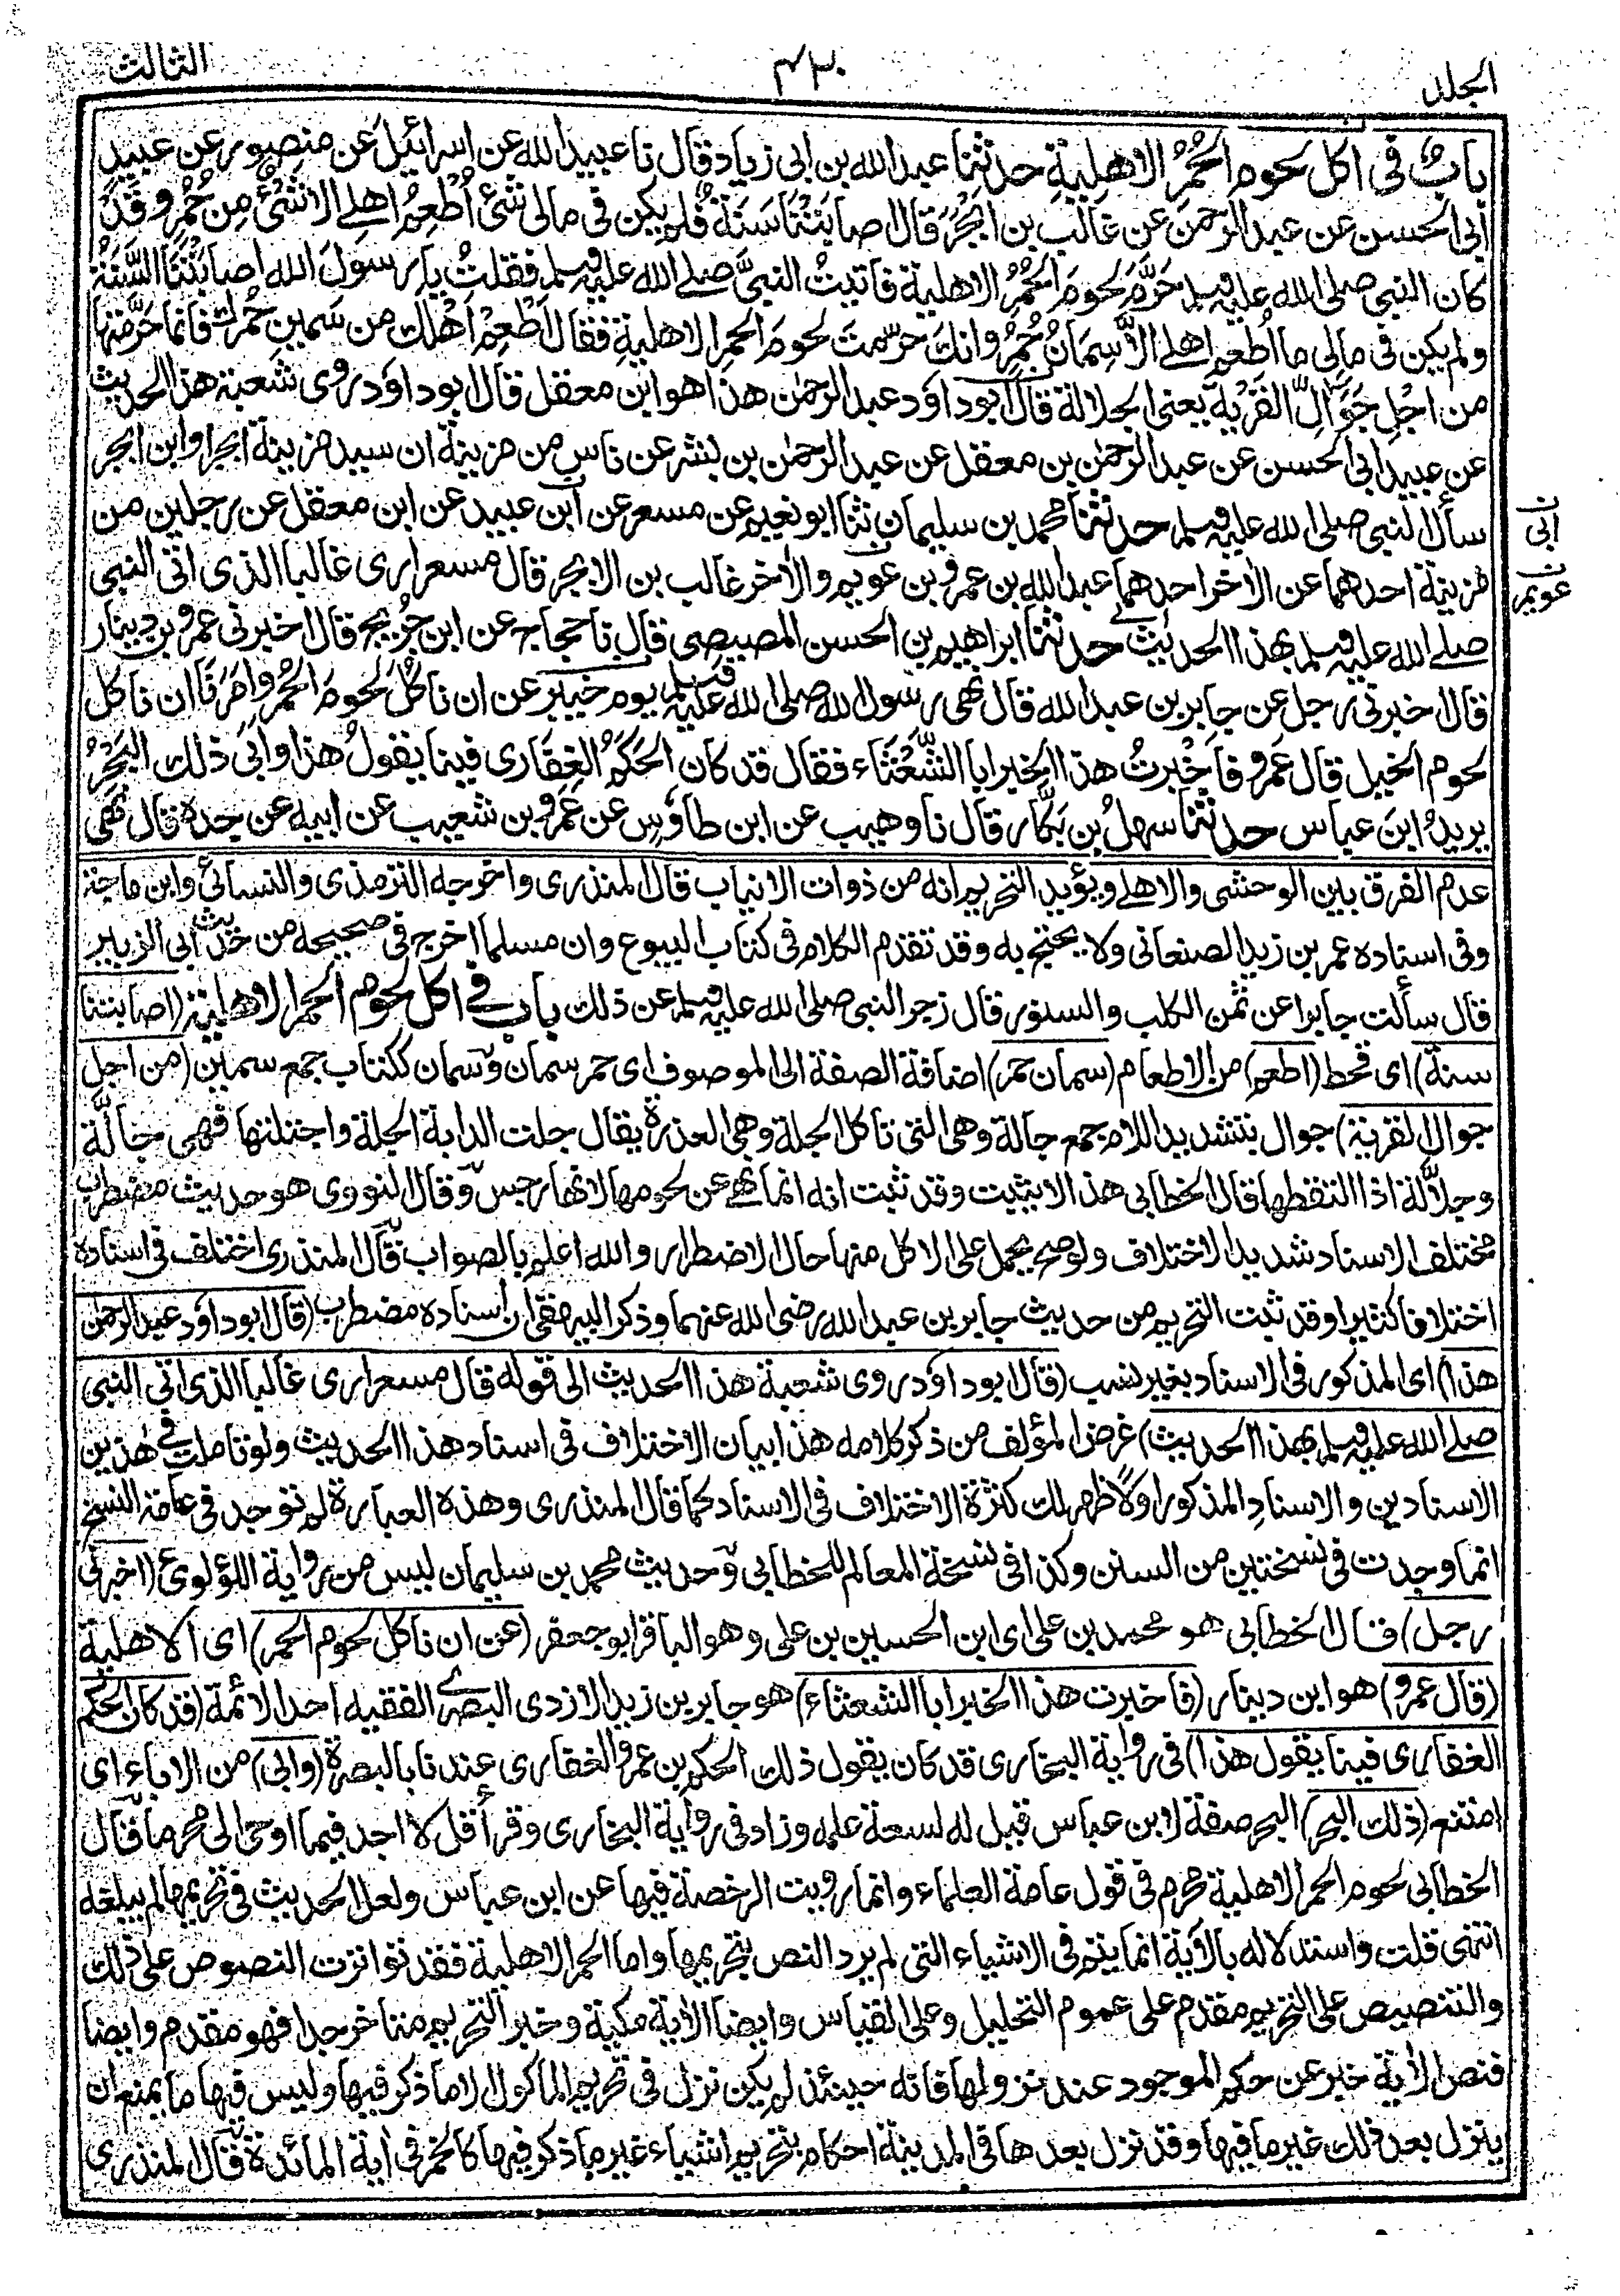 المجلد
٤٣٠
الثالث
بابٌ في اكل لحوم الحُمُرِ الاهليةِ حدثنا عبد الله بن ابى زياد قال نا عبيد الله عن اسرائيل عن منصور عن عبيدٍ
أبى الحسن عن عبد الرحمن عن غالب بن ابجُرَ قال صابَتْنَا سَنَةٌ فلم يكن في مالى شئ اُطْعِمُ اهلى الا شَئٌ من حُمُرٍ وقد
كان النبي صلى الله عليه وسلم حَرَّمَ لحومَ الحُمُرِ الاهلية فاتيتُ النبيَّ صلى الله عليه وسلم فقلتُ يا رسولَ الله اصابَتْنَا السَّنَةُ
ولم يكن في مالى ما اُطعم اهلى الا سِمَانُ حُمُرٍ وانك حَرّمتَ لحومَ الحمر الاهليةِ فقال اَطْعِمْ اَهْلَك من سَمين حُمُرك فانما حَرَّمتها
من اجْلِ جَوَالِّ القَرْيةِ يعنى الجلالة قال ابو داود عبد الرحمن هذا هو ابن معقل قال ابو داود روى شعبة هذا الحديث
عن عبيد ابى الحسن عن عبد الرحمن بن معقل عن عبد الرحمن بن بشر عن ناس من مزينة ان سيد مزينة ابجر او ابن ابجر
سأل النبي صلى الله عليه وسلم حدثنا محمد بن سليمان ثنا ابو نعيم عن مسعر عن ابن عبيد عن ابن معقل عن رجلين من
ابى
مزينة احدهما عن الاخر احدهما عبد الله بن عمرو بن عويم والاخر غالب بن الابجر قال مسعر ارى غالبا الذى اتى النبي
عويمر
صلى الله عليه وسلم بهذا الحديث حدثنا ابراهيم بن الحسن المصيصى قال نا حجاج عن ابن جُرَيج قال اخبرنى عمرو بن دينار
قال اخبرنى رجل عن جابر بن عبد الله قال نهى رسول الله صلى الله عليه وسلم يوم خيبر عن ان ناكُلَ لحومَ الحُمُرِ وامَرَنَا ان ناكل
لحوم الخيل قال عَمرو فاَخْبرتُ هذا الخبر ابا الشَّعْثَاء فقال قد كان الحَكَمُ الغِفَارى فينا يقولُ هذا وابَى ذلك البَحْرُ
يريدُ ابنَ عباس حدثنا سهلُ بن بَكَّار قال نا وهيب عن ابن طاوسٍ عن عمرو بن شعيب عن ابيه عن جده قال نهى
عدم الفرق بين الوحشى والاهلى ويؤيد التحريم انه من ذوات الانياب قال المنذرى واخرجه الترمذى والنسائى وابن ماجة
وفى اسناده عمر بن زيد الصنعانى ولا يحتج به وقد تقدم الكلام في كتاب البيوع وان مسلما اخرج في صحيحه من حديث ابى الزبير
قال سألت جابرا عن ثمن الكلب والسنور قال زجر النبي صلى الله عليه وسلم عن ذلك باب في اكل لحوم الحمر الاهلية (اصابتنا
سنة) اى قحط (اطعم) من الاطعام (سمان حمر) اضافة الصفة الى الموصوف اى حمر سمان وسمان ككتاب جمع سمين (من اجل
جوال القرية) جوال بتشديد اللام جمع جالة وهى التى تاكل الجلة وهى العذرة يقال جلت الدابة الجلة واجتلتها فهى جالّة
وجلاّلة اذا التقطها قال الخطابى هذا لا يثبت وقد ثبت انه انما نهى عن لحومها لانها رجس وقال النووى هو حديث مضطرب
مختلف الاسناد شديد الاختلاف ولو صح يحمل على الاكل منها حال الاضطرار والله اعلم بالصواب قال المنذرى اختلف في اسناده
اختلافا كثيرا وقد ثبت التحريم من حديث جابر بن عبد الله رضى الله عنهما وذكر البيهقى ان اسناده مضطرب (قال ابو داود عبد الرحمن
هذا) اى المذكور في الاسناد بغير نسب (قال ابو داود روى شعبة هذا الحديث الى قوله قال مسعر ارى غالبا الذى اتى النبي
صلى الله عليه وسلم بهذا الحديث) غرض المؤلف من ذكر كلامه هذا بيان الاختلاف في اسناد هذا الحديث ولو تاملت في هذين
الاسنادين والاسنادِ المذكور اولاً ظهر لك كثرة الاختلاف في الاسناد كما قال المنذرى وهذه العبارة لم توجد في عامة النسخ
انما وجدت في نسختين من السنن وكذا في نسخة المعالم للخطابى وحديث محمد بن سليمان ليس من رواية اللؤلوى (اخبرنى
رجل) قال الخطابى هو محمد بن على اى ابن الحسين بن على وهو الباقر ابو جعفر (عن ان ناكل لحوم الحمر) اى الاهلية
(قال عمرو) هو ابن دينار (فاخبرت هذا الخبر ابا الشعثاء) هو جابر بن زيد الازدى البصرى الفقيه احد الائمة (قد كان الحكم
الغفارى فينا يقول هذا) في رواية البخارى قد كان يقول ذلك الحكم بن عمرو الغفارى عندنا بالبصرة (وابى) من الاباء اى
امتنع (ذلك البحر) البحر صفة لابن عباس قيل له لسعة علمه وزاد في رواية البخارى وقرأ قل لا اجد فيما اوحى الى محرما قال
الخطابى لحوم الحمر الاهلية محرم في قول عامة العلماء وانما رويت الرخصة فيها عن ابن عباس ولعل الحديث في تحريمها لم يبلغه
انتهى قلت واستدلاله بالآية انما يتم في الاشياء التى لم يرد النص بتحريمها واما الحمر الاهلية فقد تواترت النصوص على ذلك
والتنصيص على التحريم مقدم على عموم التحليل وعلى القياس وايضا الآية مكية وخبر التحريم متاخر جدا فهو مقدم وايضا
فنص الآية خبر عن حكم الموجود عند نزولها فانه حينئذ لم يكن نزل في تحريم الماكول الا ما ذكر فيها وليس فيها ما يمنع ان
ينزل بعد ذلك غير ما فيها وقد نزل بعدها في المدينة احكام بتحريم اشياء غير ما ذكر فيها كالخمر في آية المائدة قال المنذرى